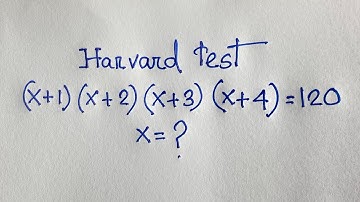 Harvard Test
(x+1) (x+2) (x+3) (x+4) = 120
x = ?